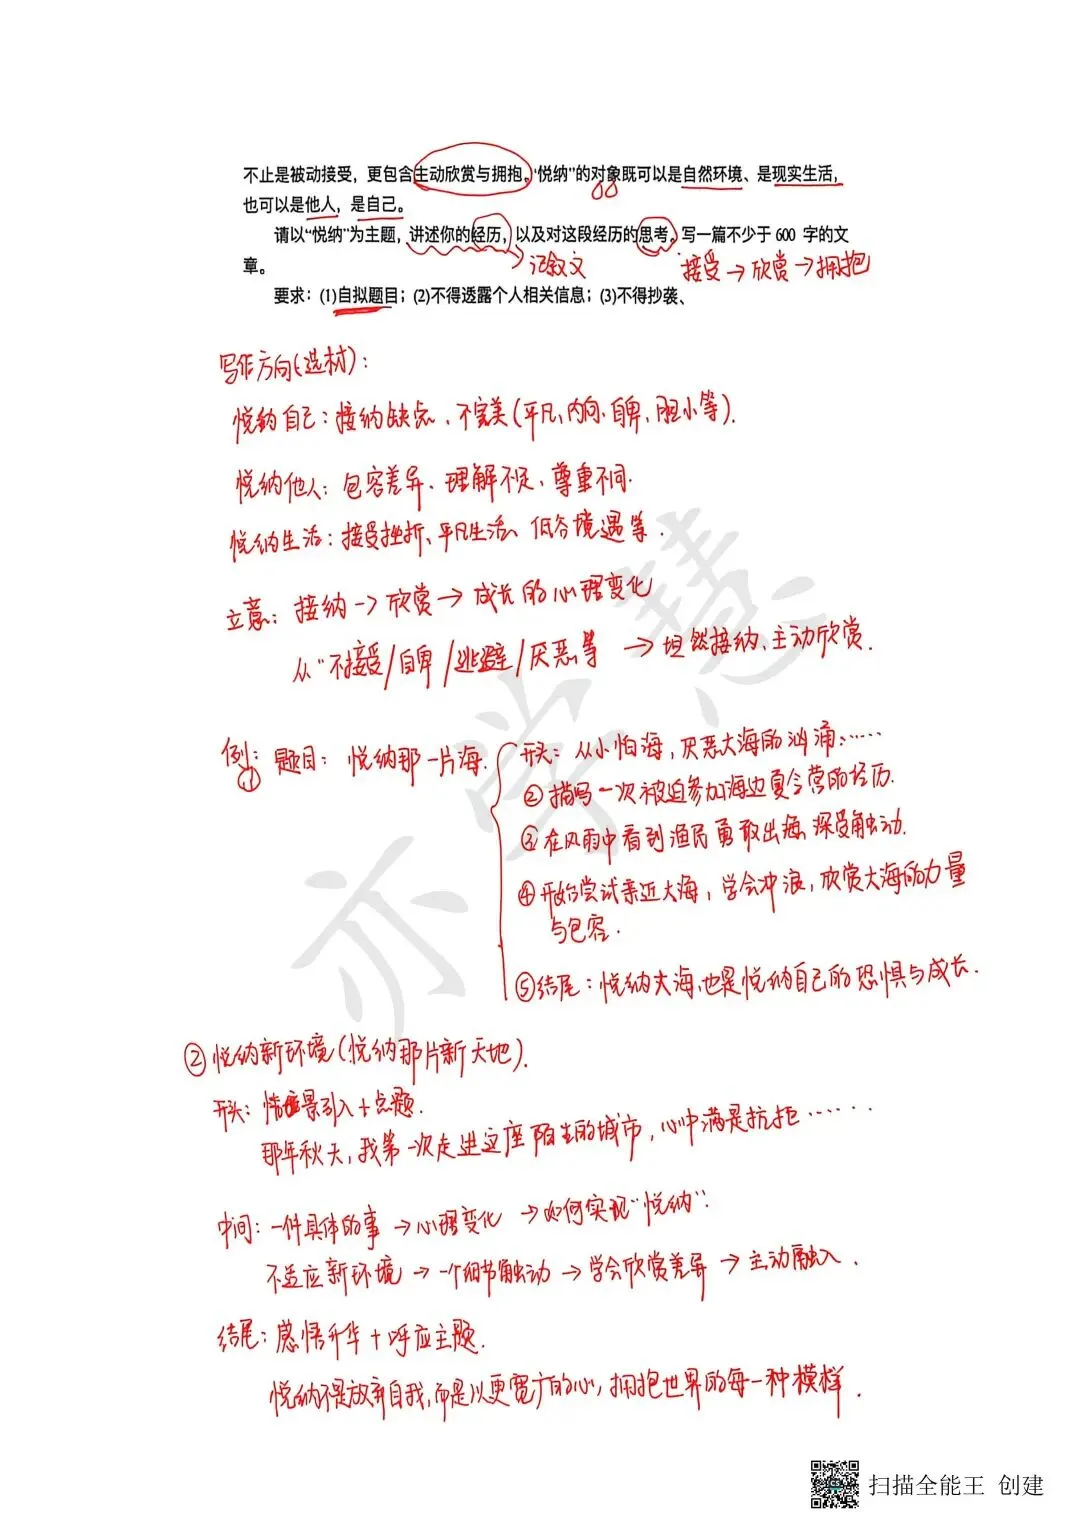 不止是被动接受，更包含主动欣赏与拥抱。“悦纳”的对象既可以是自然环境、是现实生活，
也可以是他人，是自己。
请以“悦纳”为主题，讲述你的经历，以及对这段经历的思考。写一篇不少于 600 字的文
章。
记叙文
接受→欣赏→拥抱
要求：(1)自拟题目；(2)不得透露个人相关信息；(3)不得抄袭、
写作方向(选材)：
悦纳自己：接纳缺点、不完美(平凡、内向、自卑、胆小等).
悦纳他人：包容差异、理解不足、尊重不同.
悦纳生活：接受挫折、平凡生活、低谷境遇等.
立意：接纳→欣赏→成长的心理变化
从“不接受/自卑/逃避/厌恶等→坦然接纳、主动欣赏.
例：① 题目：悦纳那一片海.
开头：从小怕海，厌恶大海的汹涌……
②描写一次被迫参加海边夏令营的经历.
③在风雨中看到渔民勇敢出海，深受触动.
④开始尝试亲近大海，学会冲浪，欣赏大海的力量
与包容.
⑤结尾：悦纳大海，也是悦纳自己的恐惧与成长.
②悦纳新环境(悦纳那片新天地).
开头：情景引入+点题.
那年秋天，我第一次走进这座陌生的城市，心中满是抗拒……
中间：一件具体的事→心理变化→如何实现“悦纳”.
不适应新环境→一个细节触动→学会欣赏差异→主动融入.
结尾：感悟升华+呼应主题.
悦纳不是放弃自我，而是以更宽广的心，拥抱世界的每一种模样.
亦学慧
扫描全能王 创建